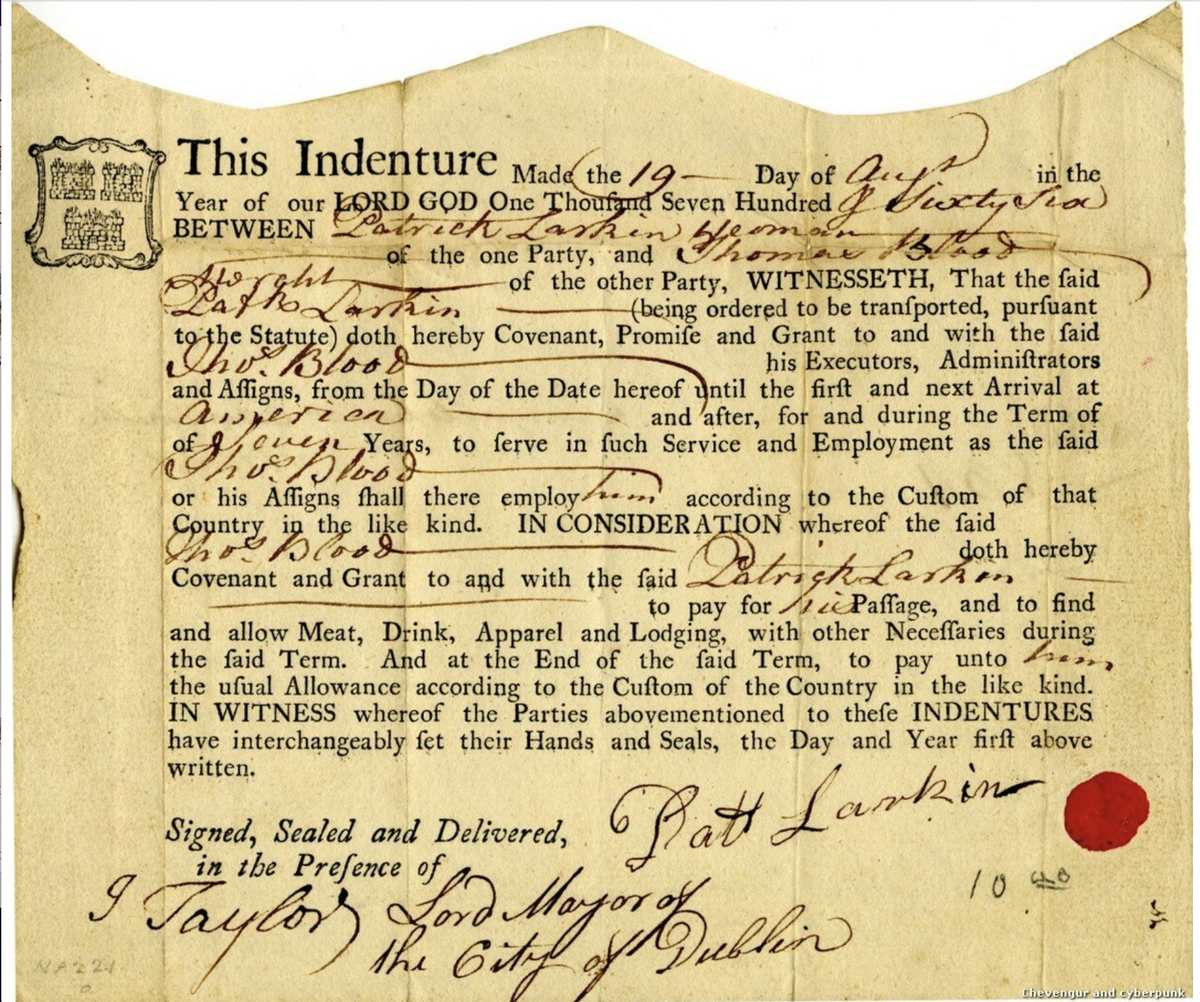 This Indenture Made the 19 Day of Augt in the
Year of our LORD GOD One Thouſand Seven Hundred & Sixty Six
BETWEEN Patrick Larkin Yeoman
of the one Party, and Thomas Blood
of the other Party, WITNESSETH, That the ſaid
Patk Larkin (being ordered to be tranſported, purſuant
to the Statute) doth hereby Covenant, Promiſe and Grant to and with the ſaid
Thos. Blood his Executors, Adminiſtrators
and Aſſigns, from the Day of the Date hereof until the firſt and next Arrival at
America and after, for and during the Term of
of Seven Years, to ſerve in ſuch Service and Employment as the ſaid
Thos. Blood
or his Aſſigns ſhall there employ him according to the Cuſtom of that
Country in the like kind. IN CONSIDERATION whereof the ſaid
Thos Blood doth hereby
Covenant and Grant to and with the ſaid Patrick Larkin
to pay for his Paſſage, and to find
and allow Meat, Drink, Apparel and Lodging, with other Neceſſaries during
the ſaid Term. And at the End of the ſaid Term, to pay unto him
the uſual Allowance according to the Cuſtom of the Country in the like kind.
IN WITNESS whereof the Parties abovementioned to theſe INDENTURES
have interchangeably ſet their Hands and Seals, the Day and Year firſt above
written.
Signed, Sealed and Delivered,
in the Preſence of
Patt Larkin
J Taylor Lord Mayor of
the City of Dublin
10
Chevengur and cyberpunk